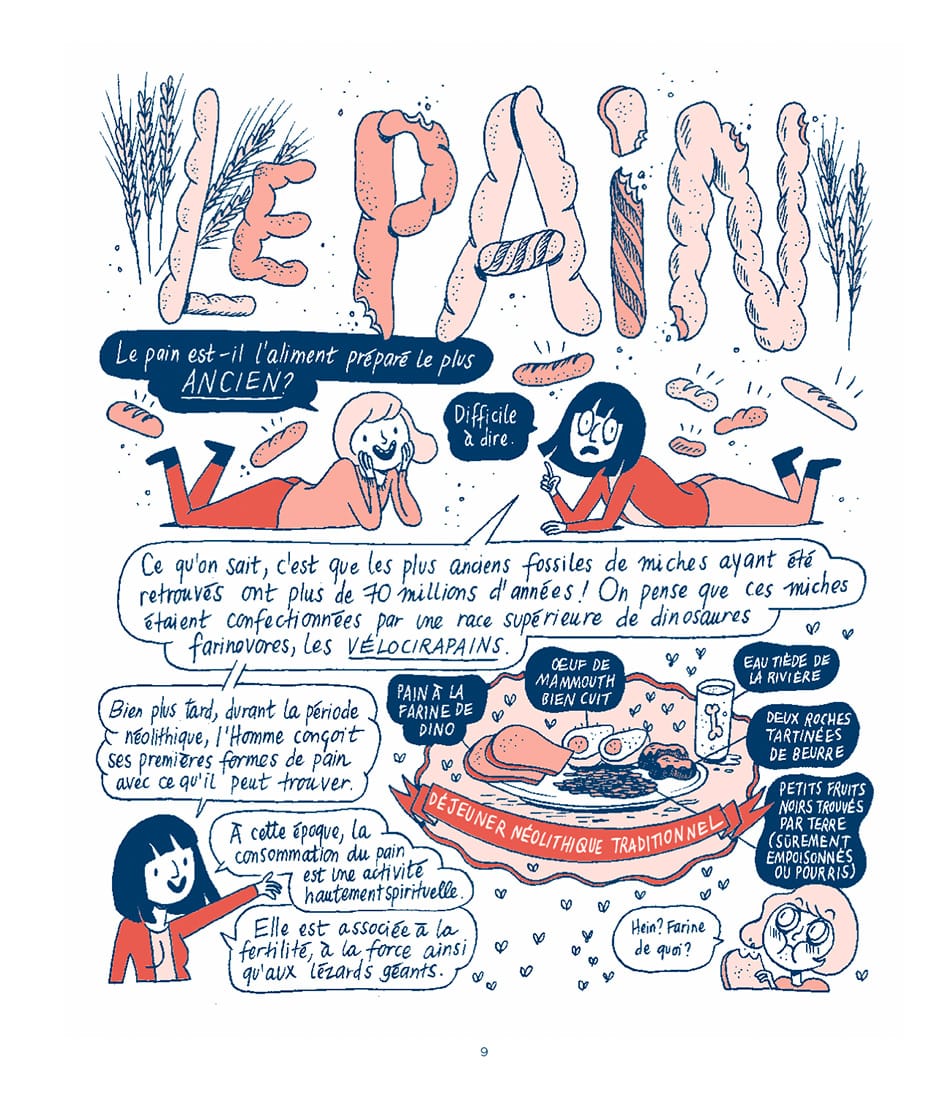 LE PAiN
Le pain est-il l'aliment préparé le plus
ANCIEN?
Difficile
à dire.
Ce qu'on sait, c'est que les plus anciens fossiles de miches ayant été
retrouvés ont plus de 70 millions d'années! On pense que ces miches
étaient confectionnées par une race supérieure de dinosaures
farinovores, les VÉLOCIRAPAINS.
Bien plus tard, durant la période
néolithique, l'Homme conçoit
ses premières formes de pain
avec ce qu'il peut trouver.
PAIN À LA
FARINE DE
DINO
ŒUF DE
MAMMOUTH
BIEN CUIT
EAU TIÈDE DE
LA RIVIÈRE
DEUX ROCHES
TARTINÉES
DE BEURRE
PETITS FRUITS
NOIRS TROUVÉS
PAR TERRE
(SÛREMENT
EMPOISONNÉS
OU POURRIS)
DÉJEUNER NÉOLITHIQUE TRADITIONNEL
À cette époque, la
consommation du pain
est une activité
hautement spirituelle.
Elle est associée à la
fertilité, à la force ainsi
qu'aux lézards géants.
Hein? Farine
de quoi?
9